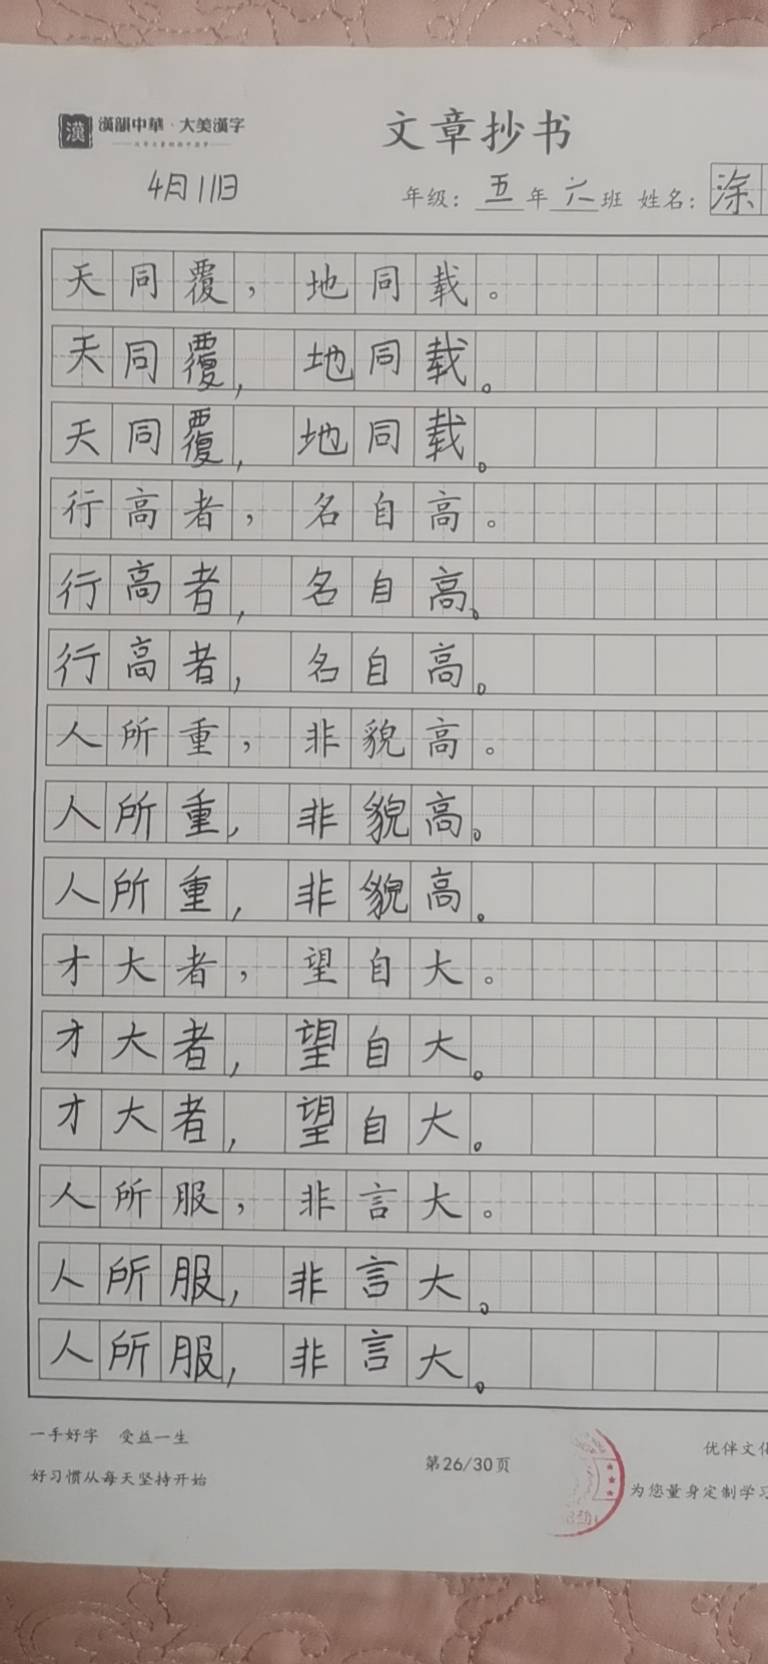 漢 漢韻中華·大美漢字
文章抄书
4月11日
年级：五年六班 姓名：涂
天同覆，地同载。
天同覆，地同载。
天同覆，地同载。
行高者，名自高。
行高者，名自高。
行高者，名自高。
人所重，非貌高。
人所重，非貌高。
人所重，非貌高。
才大者，望自大。
才大者，望自大。
才大者，望自大。
人所服，非言大。
人所服，非言大。
人所服，非言大。
一手好字 受益一生
好习惯从每天坚持开始
第26/30页
优伴文化
为您量身定制学习